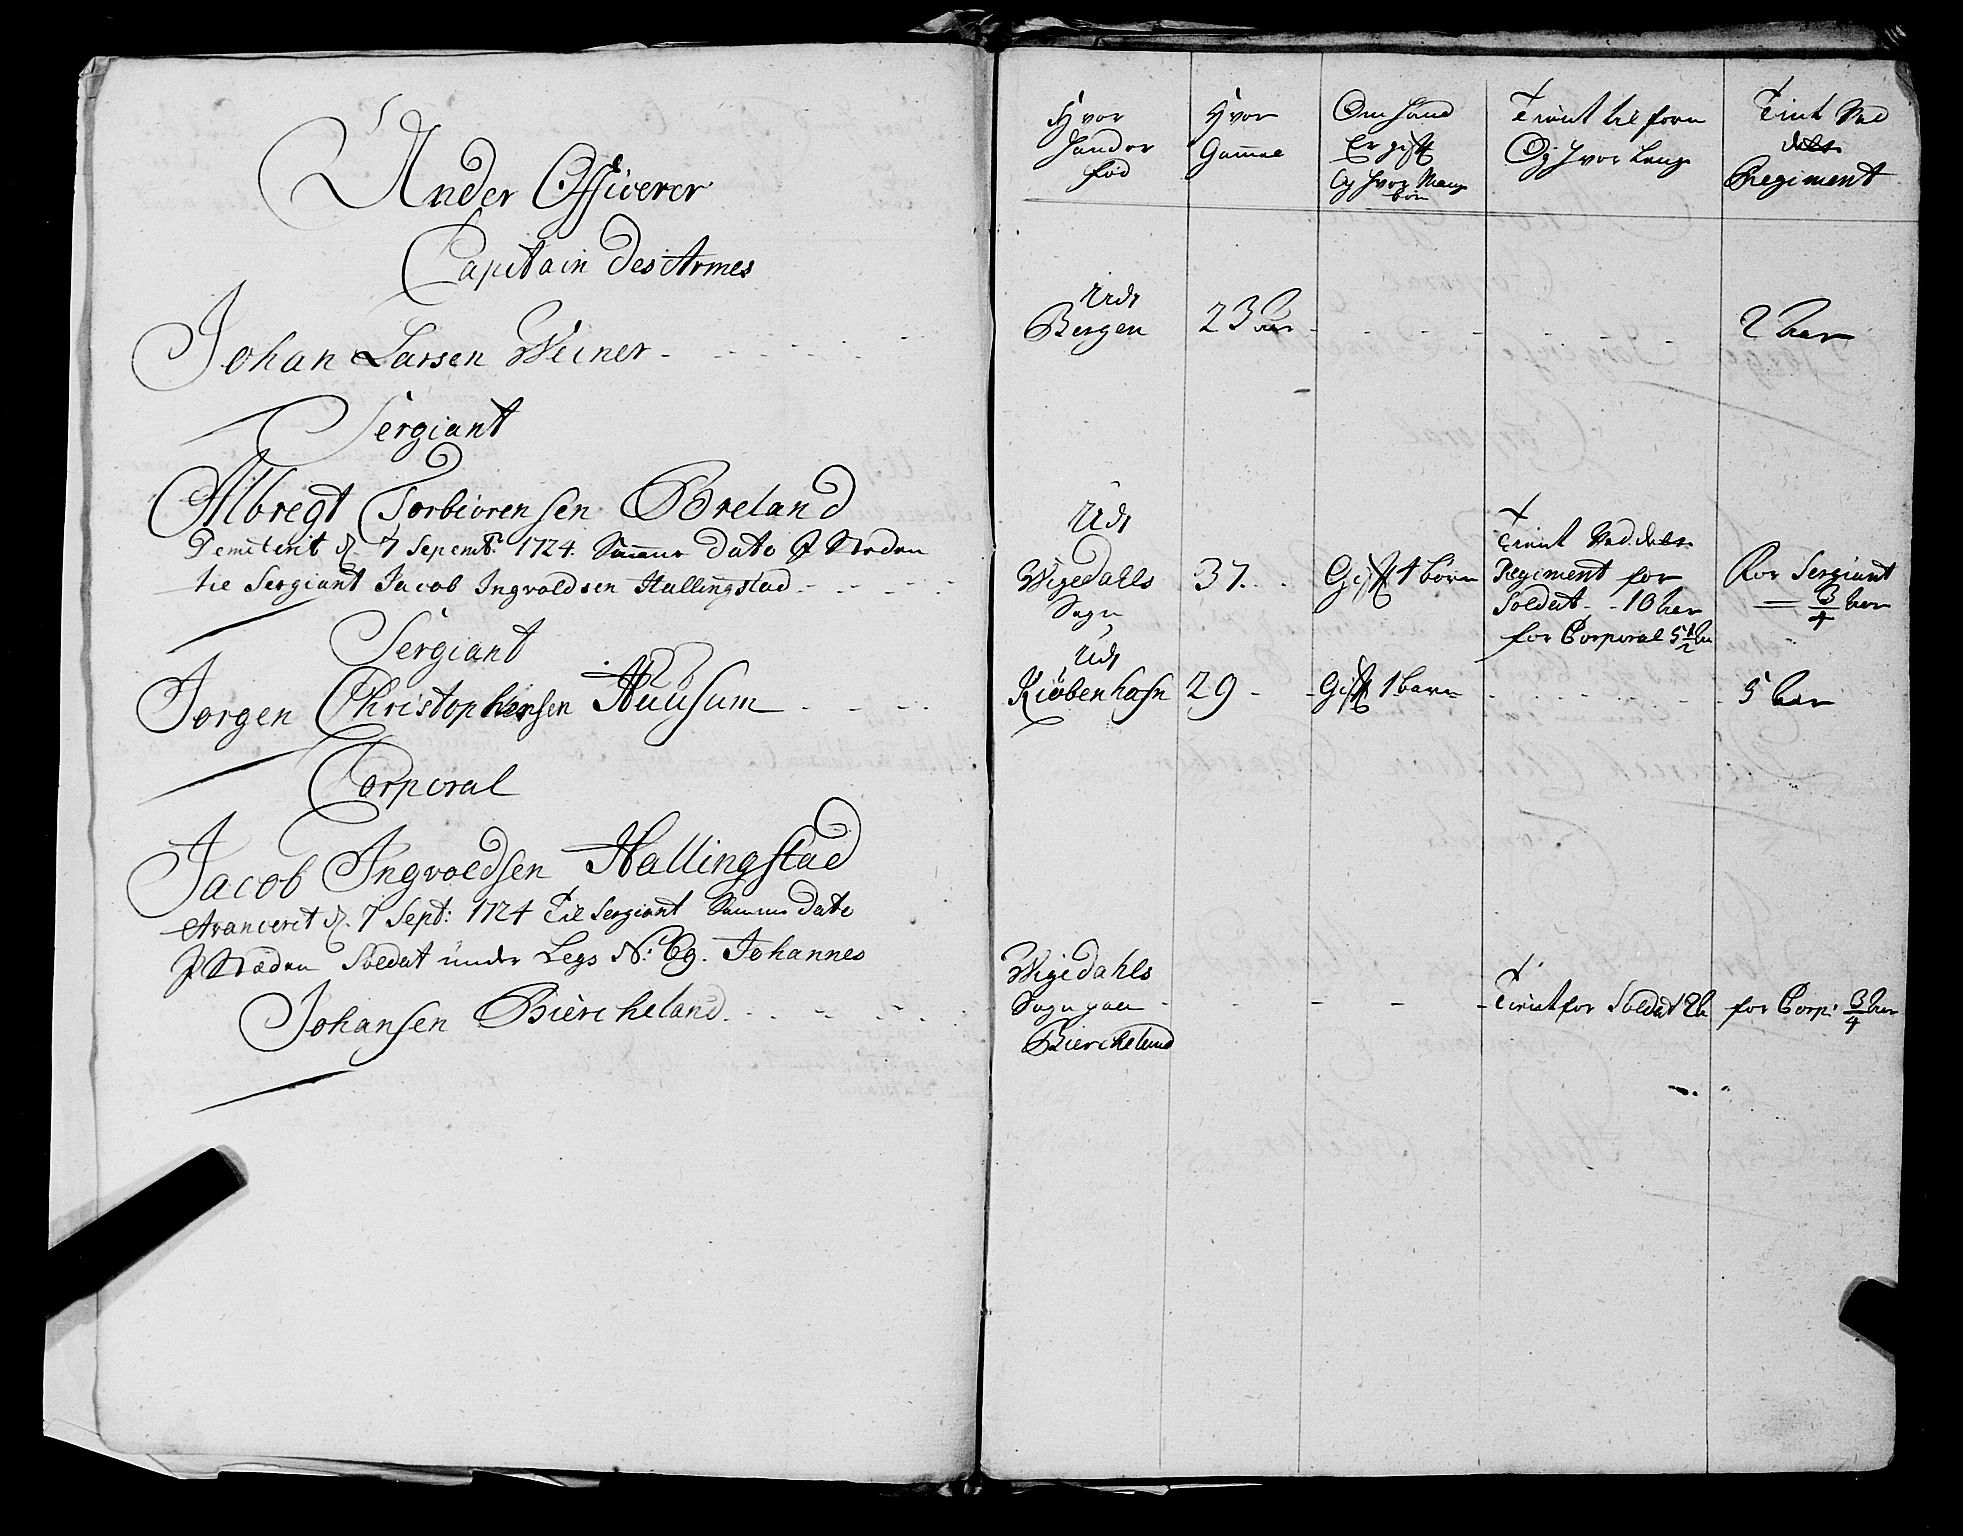 Under Officerer
Capitain Des Armes
Johan Larsen Weiner
Sergiant
Albregt Torbiørensen Birkeland
Demiterit d. 7 Sepemb. 1724. Samme Dato J Steden
til Sergiant Jacob Ingvoldsen Hallingstad
Sergiant
Jørgen Christophersen Huusum
Corporal
Jacob Ingvoldsen Hallingstad
Avanceret d. 7 Sept: 1724 Til Sergiant Samme Dato
J Steden Soldat under Legs No: 69. Johannes
Johansen Biercheland
Hvor
Hand er
fød
Hvor
Gammel
Om hand
Er gift
Og hvor Mange
børn
Tient til forn
Og hvor Lenge
Tient Ved
dette
Regiment
Udj
Bergen
23 aar
2 aar
Udj
Wigedahls
Sogn
37
Gift 4 børn
Tient Ved dette
Regiment for
Soldat 10 aar
for Corporal 5 1/2 aar
For Sergiant
3/4 aar
Udj
Kiøbenhafn
29
Gift 1 barn
5 aar
Wigedahls
Sogn paa
Biercheland
Tient for Soldat 12 a
for Corp: 3/4 aar